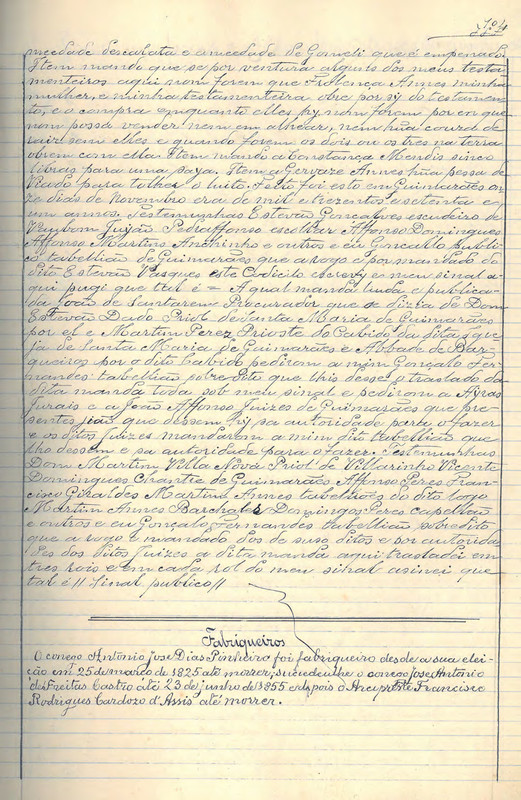 mcedade descalata e amcedade de Gorneli que é empenado.
Item mando que se por ventura alguis dos meus testa
menteiros aqui nom forem que Froilença Annes minha
mulher, e minha testamenteira obre por sy do testamen
to, e o compra enquanto elles hy nom forem por en que
nom possa vender nem em alhear, nem hũa couza de
raiz sem elles e quando forem os dois ou os tres na terra
obrem com ella. Item mando a Constança Mendis sinco
libras para uma saya. Item a Gervaze Annes hũa pessa de
Viado para tolher o luito. Feito foi esto em Guimarães on
ze dias de Novembro era de mil e trezentos e setenta e
um annos. Testemunhas Estevão Gonçalves escudeiro de
Pedraffonso escolhar Affonso Domingues
Affonso Martins Anchinho e outros e eu Gonçallo publi
co tabellião de Guimarães que a rogo e por mandado do
dito Estevão Vasques este Codicilo escrevy e meu sinal a
qui pugi que tal é = A qual manda liuda e publica
da João de Santarem Procurador que se dizia de Dom
Estevão Dado Priol de Santa Maria de Guimarães
por el e Martim Perez Prioste do Cabido da dita Igre
ja de Santa Maria de Guimarães e Abbade de Bar
queiros por o dito Cabido pedirom a mim Gonçalo Fer
nandes tabellião sobredito que lhis desse o traslado da
dita manda toda sob meu sinal e pedirom a Ayras
Jurais e a João Affonso Juizes de Guimarães que pre
sentes que dessem hy sa autoridade para o fazer
e os ditos Juizes mandarom a mim dito tabellião que
lho dessem e sa autoridade para o fazer. Testemunhas
Dom Martim Villa Nova Priol de Villarinho Vicente
Domingues Chantre de Guimarães Affonso Peres Fran
cisco Giraldes Martins Annes tabelliões do dito logo
Martim Annes Barchales Domingos Peres capellão
e outros e eu Gonçalo Fernandes tabellião sobredito
que a rogo e mandado dos de suso ditos e por autorida
des dos ditos Juizes a dita manda aqui trasladei em
tres rois e em cada rol do meu sinal asinei que
tal é // Sinal publico //
Fabriqueiros
O conego Antonio José Dias Pinheiro foi fabriqueiro desde a sua elei-
ção em 25 de março de 1825 até morrer, succedeu-lhe o conego José Antonio
de Freitas Castro até 23 de junho de 1855 e depois o Arcipreste Francisco
Rodrigues Cardozo d'Assis até morrer.